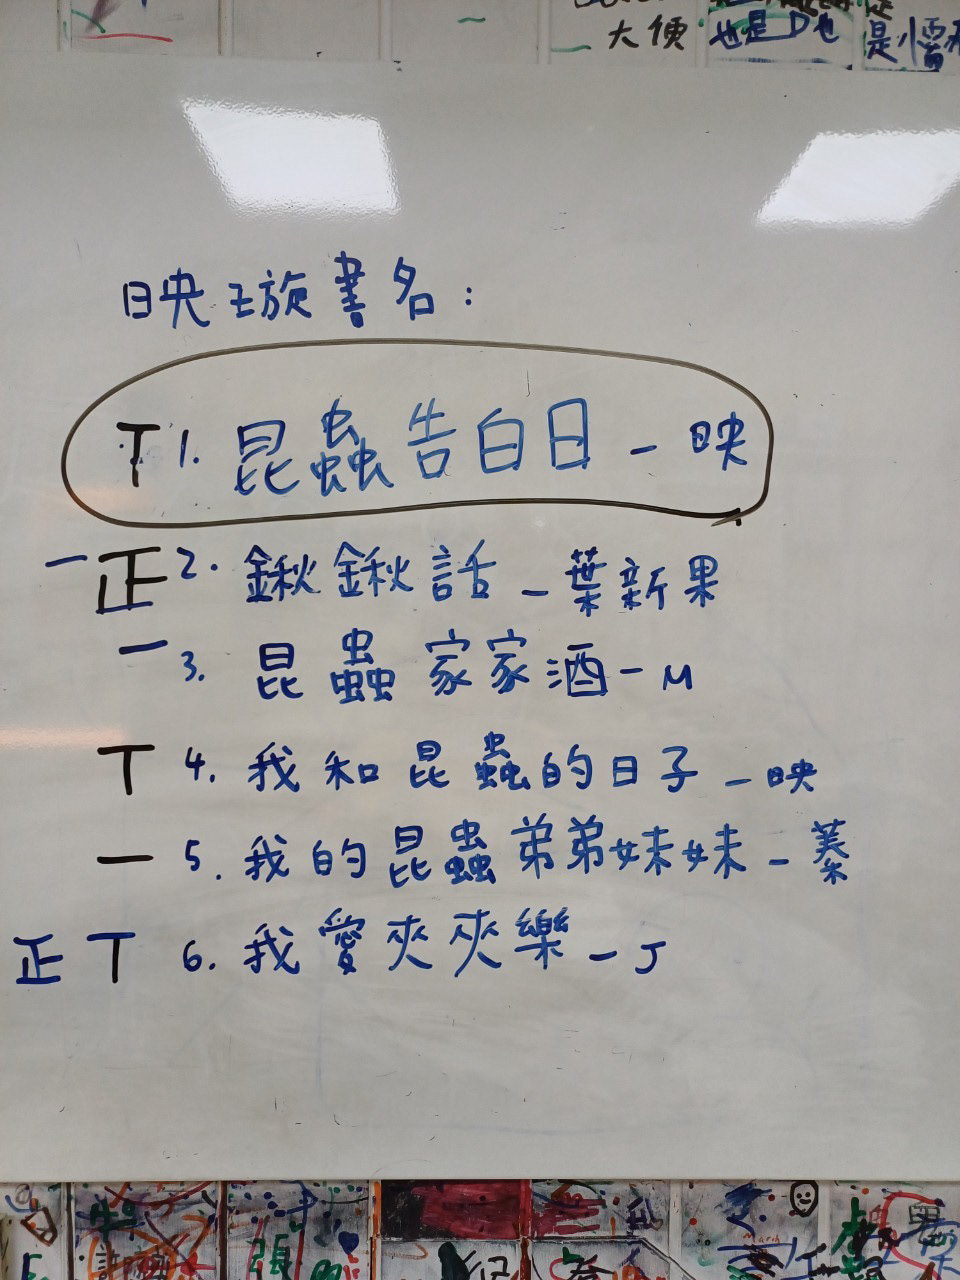 大便
也是D也
是
映璇書名：
丅 1. 昆蟲告白日 - 映
一正 2. 鍬鍬話 - 葉新果
一 3. 昆蟲家家酒 - M
丅 4. 我和昆蟲的日子 - 映
一 5. 我的昆蟲弟弟妹妹 - 蓁
正丅 6. 我愛夾夾樂 - J